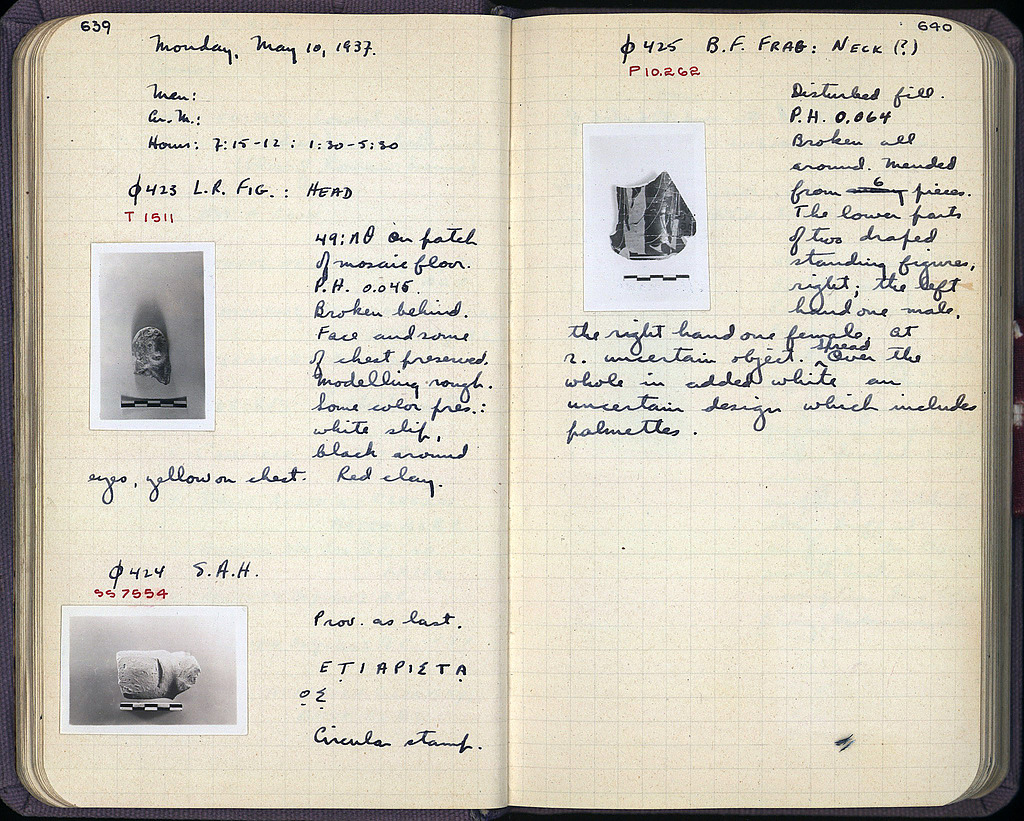 639
Monday, May 10, 1937.
Men:
Cu. M.:
Hours: 7:15-12 : 1:30-5:30
φ423 L.R. FIG. : HEAD
T 1511
49:ΛΘ On patch
of mosaic floor.
P.H. 0.045.
Broken behind.
Face and some
of chest preserved.
Modelling rough.
Some color pres.:
white slip,
black around
eyes, yellow on chest. Red clay.
φ424 S.A.H.
SS 7554
Prov. as last.
ΕΤΙΑΡΙΣΤΑ
ΟΣ
Circular stamp.
640
φ425 B.F. FRAG: NECK (?)
P 10.262
Disturbed fill.
P.H. 0.064
Broken all
around. Mended
from 6 pieces.
The lower parts
of two draped
standing figures,
right; the left
hand one male,
the right hand one female. At
r. uncertain object. Spread over the
whole in added white an
uncertain design which includes
palmettes.